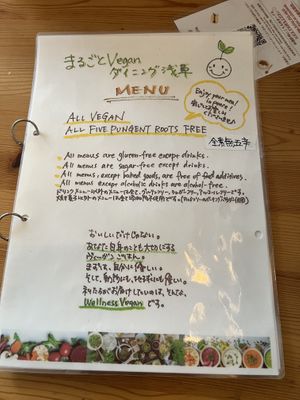 まるごとVegan
ダイニング浅草
MENU
Enjoy your meal
in peace!
ALL VEGAN
ALL FIVE PUNGENT ROOTS FREE
全素無五辛
All menus are gluten-free except drinks.
All menus are sugar-free except drinks.
All menus, except baked goods, are free of food additives.
All menus except alcoholic drinks are alcohol-free.
おいしいだけじゃない。
あなた自身のことも大切にする
ヴィーガンごはん。
まずは、自分に優しい。
そして、動物にも、地球にも優しい。
私たちがお届けしたいのは、そんな、
Wellness Veganです。